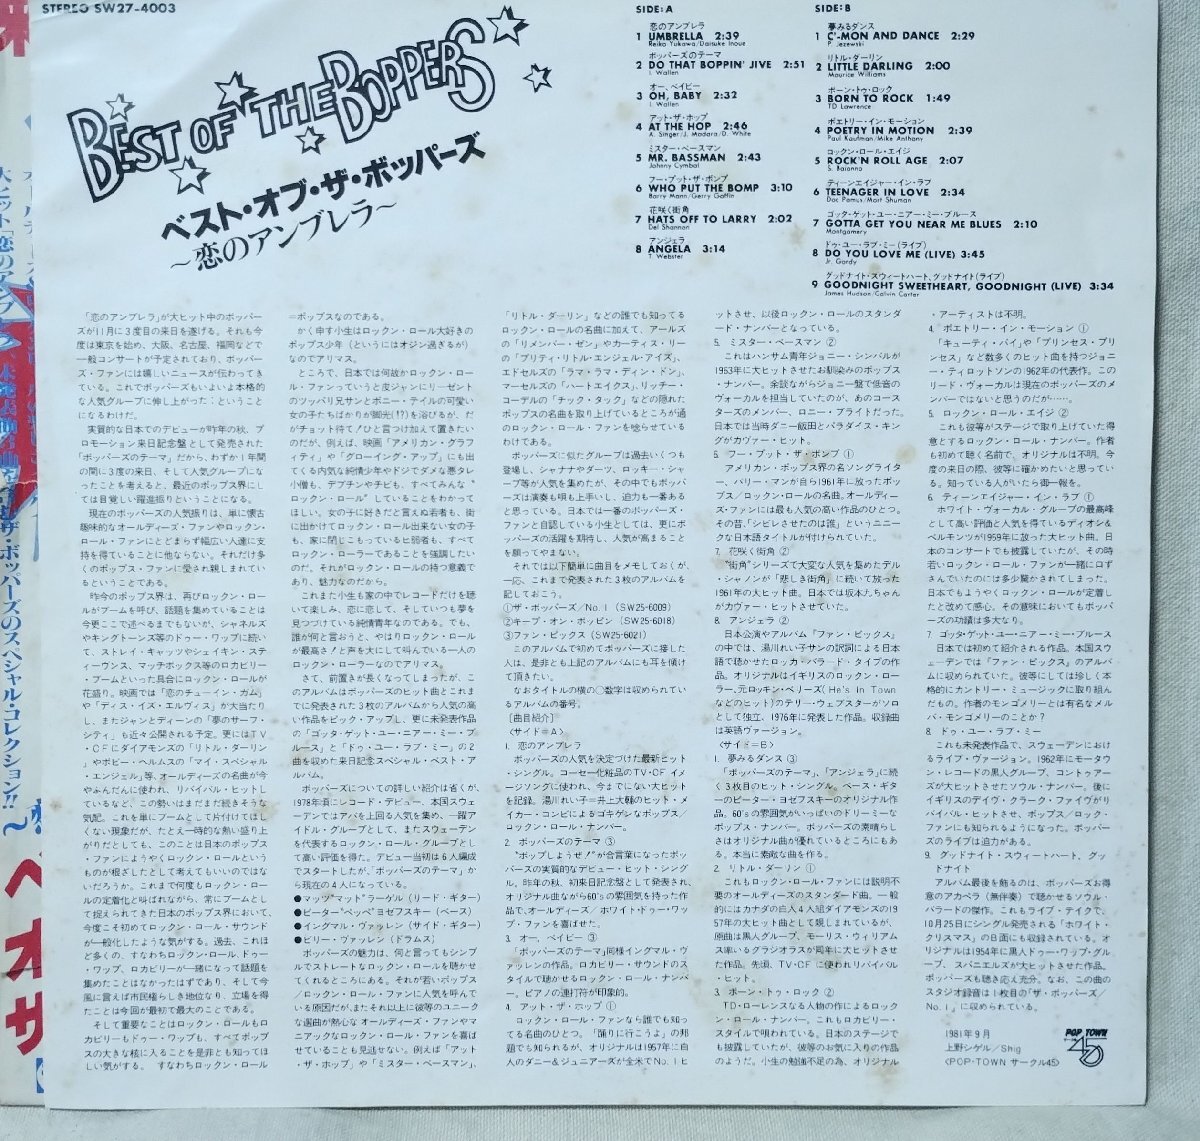 STEREO SW27-4003
BEST OF THE BOPPERS
ベスト・オブ・ザ・ボッパーズ
〜恋のアンブレラ〜
SIDE: A
恋のアンブレラ
1 UMBRELLA 2:39
Reiko Yukawa/Daisuke Inoue
ボッパーズのテーマ
2 DO THAT BOPPIN' JIVE 2:51
I. Wallen
オー、ベイビー
3 OH, BABY 2:32
I. Wallen
アット・ザ・ホップ
4 AT THE HOP 2:46
A. Singer/J. Madara/D. White
ミスター・ベースマン
5 MR. BASSMAN 2:43
Johnny Cymbal
フー・プット・ザ・ボンプ
6 WHO PUT THE BOMP 3:10
Barry Mann/Gerry Goffin
花咲く街角
7 HATS OFF TO LARRY 2:02
Del Shannon
アンジェラ
8 ANGELA 3:14
T. Webster
SIDE: B
夢みるダンス
1 C'-MON AND DANCE 2:29
P. Jezewski
リトル・ダーリン
2 LITTLE DARLING 2:00
Maurice Williams
ボーン・トゥ・ロック
3 BORN TO ROCK 1:49
TD Lawrence
ポエトリー・イン・モーション
4 POETRY IN MOTION 2:39
Paul Kaufman/Mike Anthony
ロックン・ロール・エイジ
5 ROCK'N ROLL AGE 2:07
S. Baronno
ティーンエイジャー・イン・ラブ
6 TEENAGER IN LOVE 2:34
Doc Pomus/Mort Shuman
ゴッタ・ゲット・ユー・ニアー・ミー・ブルース
7 GOTTA GET YOU NEAR ME BLUES 2:10
Montgomery
ドゥ・ユー・ラブ・ミー(ライブ)
8 DO YOU LOVE ME (LIVE) 3:45
Jr. Gordy
グッドナイト・スウィートハート、グッドナイト(ライブ)
9 GOODNIGHT SWEETHEART, GOODNIGHT (LIVE) 3:34
James Hudson/Calvin Carter
「恋のアンブレラ」が大ヒット中のボッパー
ズが11月に3度目の来日を遂げる。それも今
度は東京を始め、大阪、名古屋、福岡などで
一般コンサートが予定されており、ボッパー
ズ・ファンには嬉しいニュースが伝わってき
ている。これでボッパーズもいよいよ本格的
な人気グループに伸し上がった:ということ
になるわけだ。
実質的な日本でのデビューが昨年の秋、プ
ロモーション来日記念盤として発売された
「ボッパーズのテーマ」だから、わずか1年間
の間に3度の来日、そして人気グループにな
ったことを考えると、最近のポップス界にし
ては目覚しい躍進振りということになる。
現在のボッパーズの人気振りは、単に懐古
趣味的なオールディーズ・ファンやロックン・
ロール・ファンにとどまらず幅広い人達に支
持を得ていることに他ならない。それだけ多
くのポップス・ファンに愛され親しまれてい
るということである。
昨今のポップス界は、再びロックン・ロー
ルがブームを呼び、話題を集めていることは
今更ここで述べるまでもないが、シャネルズ
やキングトーンズ等のドゥー・ワップに続い
て、ストレイ・キャッツやシェイキン・ステ
ィーヴンス、マッチボックス等のロカビリー
・ブームといった具合にロックン・ロールが
花盛り。映画では「恋のチューイン・ガム」
や「ディス・イズ・エルヴィス」が大当たり
し、またジャンとディーンの「夢のサーフ・
シティ」も近々公開される予定。更にはTV
・CFにダイアモンズの「リトル・ダーリン
」やボビー・ヘルムスの「マイ・スペシャル
・エンジェル」等、オールディーズの名曲が今
やふんだんに使われ、リバイバル・ヒットし
ているなど、この勢いはまだまだ続きそうな
気配。これを単にブームとして片付けてほし
くない現象だが、たとえ一時的な熱い盛り上
がりだとしても、このことは日本のポップス
・ファンにようやくロックン・ロールという
ものが根ざしたとして考えてもいいのではな
いだろうか。これまで何度もロックン・ロー
ルの定着化と呼ばれながら、常にブームとし
て捉えられてきた日本のポップス界において、
今度こそ初めてロックン・ロール・サウンド
が一般化したような気がする。過去、これほ
ど多くの、すなわちロックン・ロール、ドゥー
・ワップ、ロカビリーが一緒になって話題を
集めたことはなかったはずであり、そして今
風に言えば市民権らしき地位なり、立場を得
たことは今回が最初で最大のことである。
そして重要なことはロックン・ロールもロ
カビリーもドゥー・ワップも、すべてポップ
スの大きな核に入ることを是非とも知ってほ
しい気がする。 すなわちロックン・ロール
=ポップスなのである。
かく申す小生はロックン・ロール大好きの
ポップス少年(というにはオジン過ぎるが)
なのでアリマス。
ところで、日本では何故かロックン・ロー
ル・ファンっていうと皮ジャンにリーゼント
のツッパリ兄サンとポニー・テイルの可愛い
女の子たちばかりが脚光(!?)を浴びるが、だ
がチョット待て!ひと言つけ加えて置きたい
のだが、例えば、映画「アメリカン・グラフ
ィティ」や「グローイング・アップ」にも出
てくる内気な純情少年やドジでダメな悪タレ
小僧も、デブチンやチビも、すべてみんな"
ロックン・ロール"していることをわかって
ほしい。女の子に好きだと言えぬ若者も、街
に出かけてロックン・ロール出来ない女の子
も、家に閉じこもっているヒ弱者も、すべて
ロックン・ローラーであることを強調したい
のだ。それがロックン・ロールの持つ意義で
あり、魅力なのだから。
これまた小生も家の中でレコードだけを聴
いて楽しみ、恋に恋して、そしていつも夢を
見つづけている純情青年なのである。でも、
誰が何と言おうと、やはりロックン・ロール
が最高さ!と声を大にして叫んでいる一人の
ロックン・ローラーなのでアリマス。
さて、前置きが長くなってしまったが、こ
のアルバムはボッパーズのヒット曲とこれま
でに発表された3枚のアルバムから人気の高
い作品をピック・アップし、更に未発表作品
の「ゴッタ・ゲット・ユー・ニアー・ミー・ブ
ルース」と「ドゥ・ユー・ラブ・ミー」の2
曲を収めた来日記念スペシャル・ベスト・ア
ルバム。
ボッパーズについての詳しい紹介は省くが、
1978年頃にレコード・デビュー、本国スウェ
ーデンではアバを上回る人気を集め、一躍ア
イドル・グループとして、またスウェーデン
を代表するロックン・ロール・グループとし
て高い評価を得た。デビュー当初は6人編成
でスタートしたが、「ボッパーズのテーマ」か
ら現在の4人になっている。
●マッツ"マット"ラーゲル(リード・ギター)
●ピーター"ペッペ"ヨゼフスキー(ベース)
●イングマル・ヴァッレン(サイド・ギター)
●ビリー・ヴァッレン(ドラムス)
ボッパーズの魅力は、何と言ってもシンプ
ルでストレートなロックン・ロールを聴かせ
てくれるところにある。それが若いポップス
/ロックン・ロール・ファンに人気を呼んで
いる原因だが、またそれ以上に彼等のユニーク
な選曲が熱心な オールディーズ・ファンやマ
ニアックなロックン・ロール・ファンを喜ば
せていることも見逃せない。例えば「アット
・ザ・ホップ」や「ミスター・ベースマン」、
「リトル・ダーリン」などの誰でも知ってる
ロックン・ロールの名曲に加えて、アールズ
の「リメンバー・ゼン」やカーティス・リー
の「プリティ・リトル・エンジェル・アイズ」、
エドセルズの「ラマ・ラマ・ディン・ドン」、
マーセルズの「ハートエイクス」、リッチー・
コーデルの「チック・タック」などの隠れた
ポップスの名曲を取り上げているところが過
のロックン・ロール・ファンを唸らせている
わけである。
ボッパーズに似たグループは過去いくつも
登場し、シャナナやダーツ、ロッキー・シャ
ープ等が人気を集めたが、その中でもボッパ
ーズは演奏も唄も上手いし、迫力も一番ある
と思っている。日本では一番のボッパーズ・
ファンと自認している小生としては、更にボ
ッパーズの活躍を期待し、人気が高まること
を願ってやまない。
それでは以下簡単に曲目をメモしておくが、
一応、これまで発表された3枚のアルバムを
記しておこう。
①ザ・ボッパーズ/No.1(SW25-6009)
②キープ・オン・ボッピン(SW25-6018)
③ファン・ピックス(SW25-6021)
このアルバムで初めてボッパーズに接した
人は、是非とも上記のアルバムにも耳を傾け
て頂きたい。
なおタイトルの横の○数字は収められてい
るアルバムの番号。
〔曲目紹介〕
〈サイド=A〉
1. 恋のアンブレラ
ボッパーズの人気を決定づけた最新ヒット
・シングル。コーセー化粧品のTV・CF イメ
ージソングに使われ、今までにない大ヒット
を記録。湯川れい子=井上大輔のヒット・メ
イカー・コンビによるゴキゲンなポップス/
ロックン・ロール・ナンバー。
2. ボッパーズのテーマ ③
"ボップしようぜ!"が合言葉になったボッパ
ーズの実質的なデビュー・ヒット・シング
ル。昨年の秋、初来日記念盤として発表され、
オリジナル曲ながら60'sの雰囲気を持った作
品で、オールディーズ/ホワイト・ドゥー・ワッ
プ・ファンを喜ばせた。
3. オー、ベイビー ③
「ボッパーズのテーマ」同様イングマル・ヴ
ァッレンの作品。ロカビリー・サウンドのス
タイルで聴かせるロックン・ロール・ナンバ
ー。ピアノの連打符が印象的。
4. アット・ザ・ホップ ①
ロックン・ロール・ファンなら誰でも知っ
てる名曲のひとつ。「踊りに行こうよ」の邦
題でも知られるが、オリジナルは1957年に3
人のダニー&ジュニアーズが全米でNo.1ヒ
ットさせ、以後ロックン・ロールのスタンダ
ード・ナンバーとなっている。
5. ミスター・ベースマン ②
これはハンサム青年ジョニー・シンバルが
1963年に大ヒットさせたお馴染みのポップス
・ナンバー。余談ながらジョニー盤で低音の
ヴォーカルを担当していたのが、あのコース
ターズのメンバー、ロニー・ブライトだった。
日本では当時ダニー飯田とパラダイス・キン
グがカヴァー・ヒット。
6. フー・プット・ザ・ボンプ ①
アメリカン・ポップス界の名ソングライタ
ー、バリー・マンが自ら1961年に放ったポッ
プス/ロックン・ロールの名曲。オールディー
ズ・ファンには最も人気の高い作品のひとつ。
その昔、「シビレさせたのは誰」というユニー
クな日本語タイトルが付けられていた。
7. 花咲く街角 ②
"街角"シリーズで大変な人気を集めたデル
・シャノンが「悲しき街角」に続いて放った
1961年の大ヒット曲。日本では坂本九ちゃん
がカヴァー・ヒットさせていた。
8. アンジェラ ②
日本公演やアルバム「ファン・ピックス」
の中では、湯川れい子サンの訳詞による日本
語で聴かせたロッカ・バラード・タイプの作
品。オリジナルはイギリスのロックン・ロー
ラー、元ロッキン・ベリーズ(He's in Town
などのヒット)のテリー・ウェブスターがソロ
として独立、1976年に発表した作品。収録曲
は英語ヴァージョン。
〈サイド=B〉
1. 夢みるダンス ③
「ボッパーズのテーマ」、「アンジェラ」に続
く3枚目のヒット・シングル。ベース・ギタ
ーのピーター・ヨゼフスキーのオリジナル作
品。60'sの雰囲気がいっぱいのドリーミーな
ポップス・ナンバー。ボッパーズの素晴らし
さはオリジナル曲が優れているところにもあ
る。本当に素敵な曲を作る。
2. リトル・ダーリン ①
これもロックン・ロール・ファンには説明不
要のオールディーズのスタンダード曲。一般
的にはカナダの白人4人組ダイアモンズの19
57年の大ヒット曲として親しまれているが、
原曲は黒人グループ、モーリス・ウィリアム
ス率いるグラジオラスが同年に大ヒットさせ
た作品。先頃、TV・CFに使われリバイバル
・ヒット。
3. ボーン・トゥ・ロック ②
TD・ローレンスなる人物の作によるロック
ン・ロール・ナンバー。これもロカビリー・
スタイルで唄われている。日本のステージで
も披露していたが、彼等のお気に入りの作品
のようだ。小生の勉強不足の為、オリジナル
・アーティストは不明。
4. ポエトリー・イン・モーション ①
「キューティ・パイ」や「プリンセス・プリ
ンセス」など数多くのヒット曲を持つジョニ
ー・ティロットソンの1962年の代表作。この
リード・ヴォーカルは現在のボッパーズのメ
ンバーではないと思うのだが……。
5. ロックン・ロール・エイジ ②
これも彼等がステージで取り上げていた得
意とするロックン・ロール・ナンバー。作者
も初めて聴く名前で、オリジナルは不明。今
度の来日の際、彼等に確かめたいと思ってい
る。知っている人がいたら御一報を。
6. ティーンエイジャー・イン・ラブ ①
ホワイト・ヴォーカル・グループの最高峰
として高い評価と人気を得ているディオン&
ベルモンツが1959年に放った大ヒット曲。日
本のコンサートでも披露していたが、その時
若いロックン・ロール・ファンが一緒に口ず
さんでいたのには多少驚かされてしまった。
日本でもようやくロックン・ロールが定着し
たと改めて感心。その意味においてもボッパ
ーズの功績は多大なり。
7 ゴッタ・ゲット・ユー・ニアー・ミー・ブルース
日本では初めて紹介される作品。本国スウ
ェーデンでは「ファン・ピックス」のアルバ
ムに収められていた。彼等にしては珍しく本
格的にカントリー・ミュージックに取り組ん
だもの。作者のモンゴメリーとは有名なメル
バ・モンゴメリーのことか?
8. ドゥ・ユー・ラブ・ミー
これも未発表作品で、スウェーデンにおけ
るライブ・ヴァージョン。1962年にモータウ
ン・レコードの黒人グループ、コントゥアー
ズが大ヒットさせたソウル・ナンバー。後に
イギリスのデイヴ・クラーク・ファイヴがリ
バイバル・ヒットさせ、ポップス/ロック・
ファンにも知られるようになった。ボッパー
ズのライブは迫力がある。
9. グッドナイト・スウィートハート、グッ
ドナイト
アルバム最後を飾るのは、ボッパーズお得
意のアカペラ(無伴奏)で聴かせるソウル・
バラードの傑作。これもライブ・テイクで、
10月25日にシングル発売される「ホワイト・
クリスマス」のB面にも収録されている。オ
リジナルは1954年に黒人ドゥー・ワップ・グル
ープ、スパニエルズが大ヒットさせた作品。
ボッパーズも聴き応え充分。なお、この曲の
スタジオ録音は1枚目の「ザ・ボッパーズ/
No.1」に収められている。
1981年9月
上野シゲル/Shig
〈POP・TOWN サークル45〉
POP TOWN
45